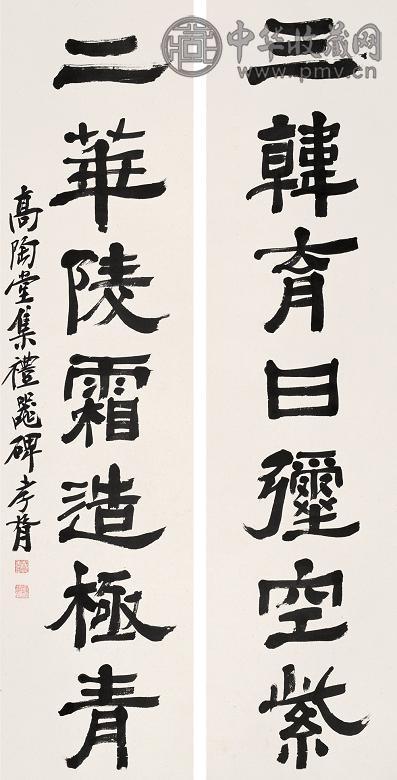 三韓育日彌空紫
二華陵霜造極青
高陶堂集禮器碑 孝胥
中华收藏网
www.pmv.cn